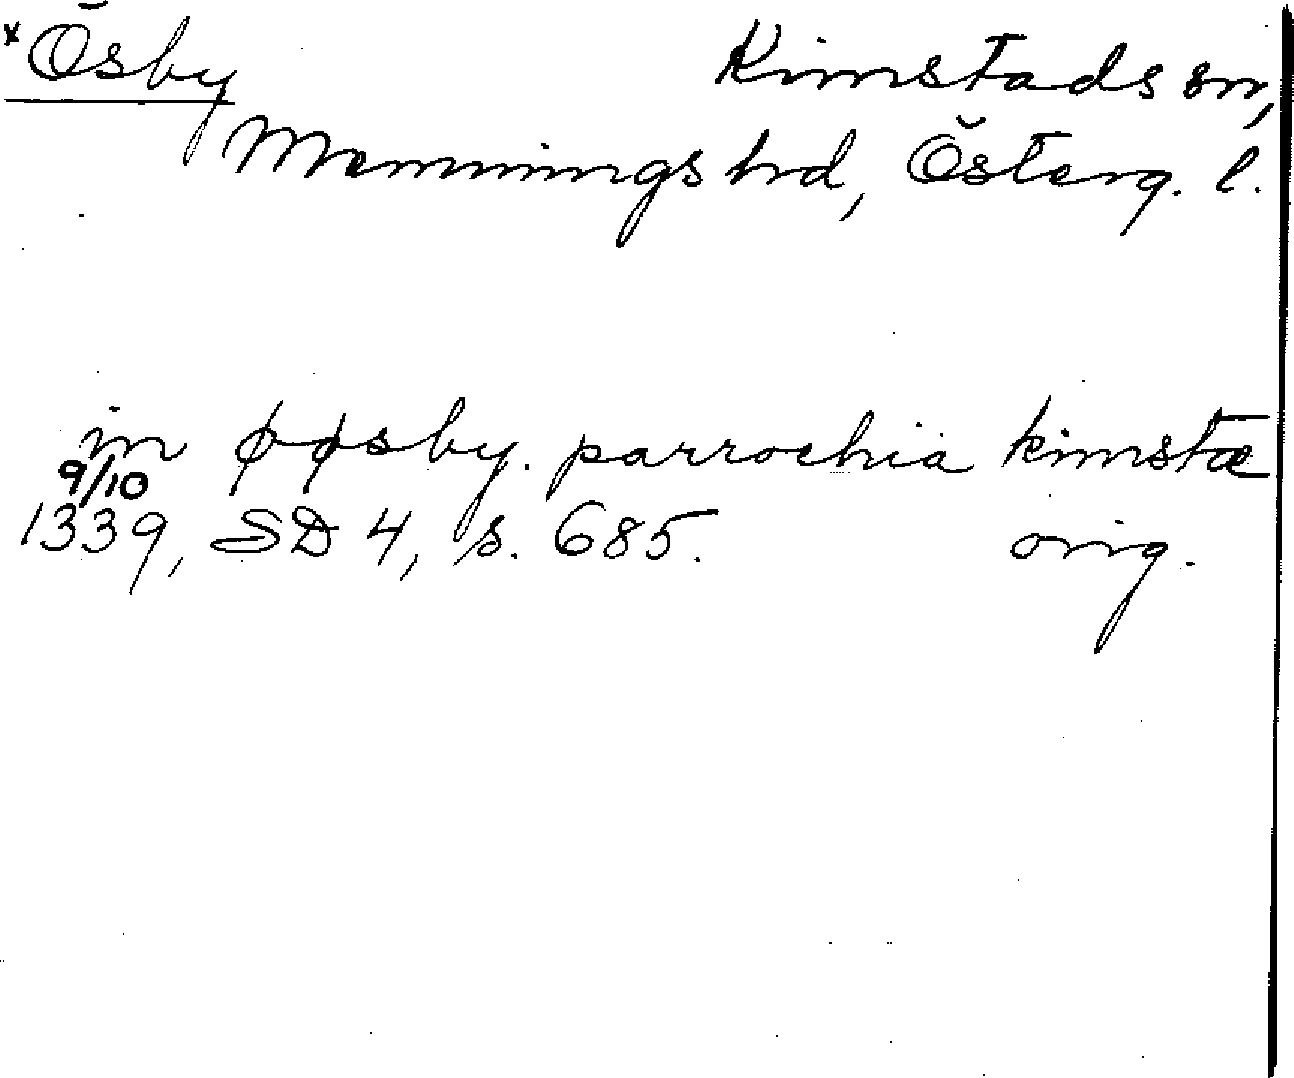 *Ösby Kimstads sn,
Memmings hd, Österg. l.
in øøsby. parrochia kimstæ
9/10
1339, SD 4, s. 685. orig.